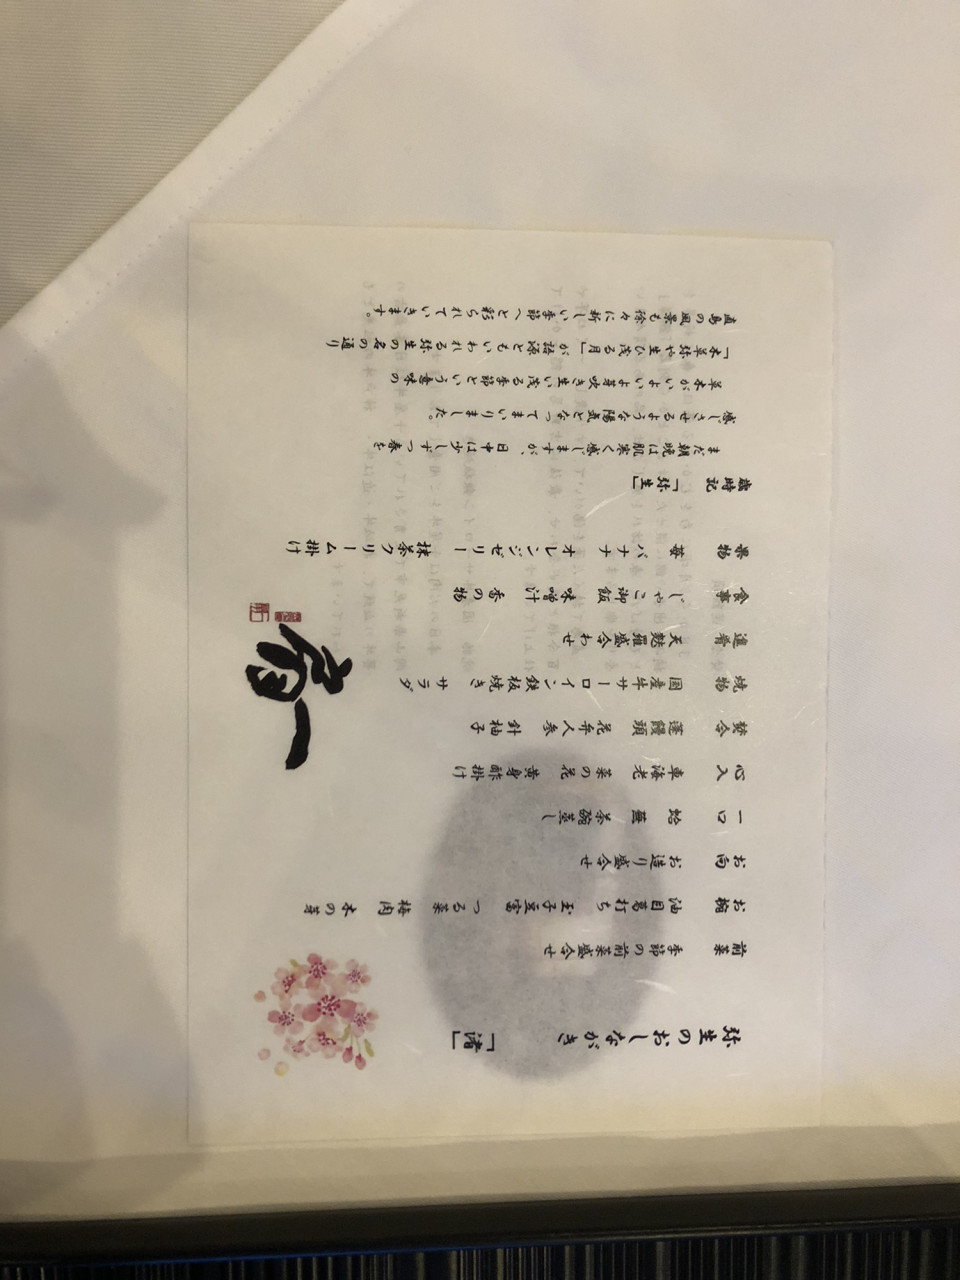 弥生のおしながき 「渚」
前菜 季節の前菜盛合せ
お椀 油目葛打ち 玉子豆富 つる菜 梅肉 木の芽
お向 お造り盛合せ
一口 蛤 蕪 茶碗蒸し
心入 車海老 菜の花 黄身酢掛け
焚合 蓬饅頭 花弁人参 針柚子
焼物 国産牛サーロイン鉄板焼き サラダ
進肴 天麩羅盛合わせ
食事 じゃこ御飯 味噌汁 香の物
果物 苺 バナナ オレンジゼリー 抹茶クリーム掛け
歳時記 「弥生」
まだ朝晩は肌寒く感じますが、日中は少しずつ春を
感じさせるような陽気となってまいりました。
草木がいよいよ芽吹き生い茂る季節という意味の
「木草弥や生ひ茂る月」が語源ともいわれる弥生の名の通り
直島の風景も徐々に新しい季節へと彩られていきます。
一扇